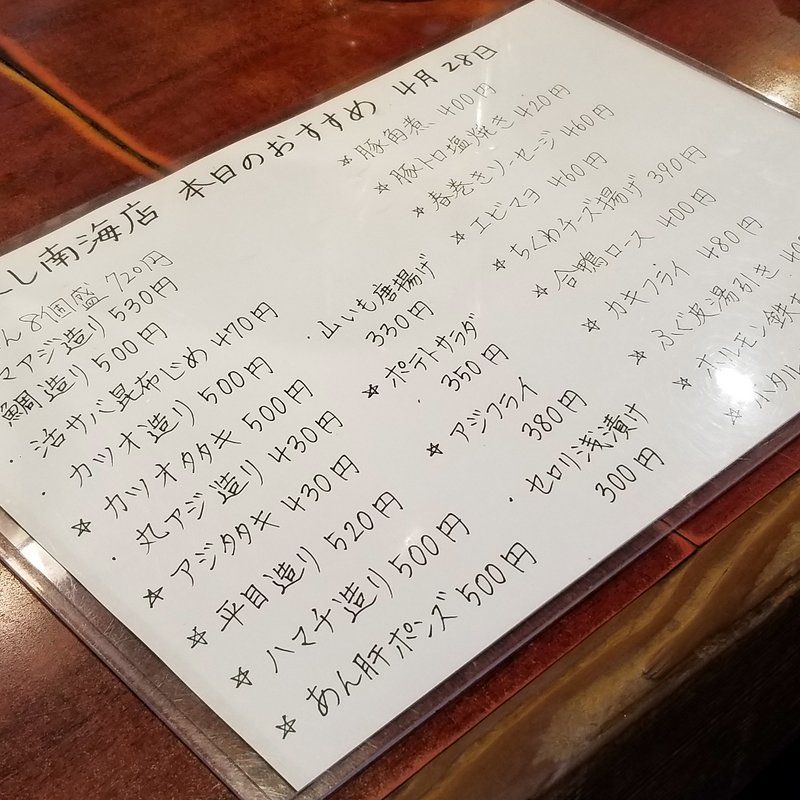 し南海店 本日のおすすめ 4月28日
8個盛 720円
マアジ造り 530円
鯛造り 500円
・活サバ昆布じめ 470円
・カツオ造り 500円
☆カツオタタキ 500円
・丸アジ造り 430円
☆アジタタキ 430円
☆平目造り 520円
☆ハマチ造り 500円
☆あん肝ポンズ 500円
・山いも唐揚げ
330円
☆ポテトサラダ
350円
☆アジフライ
380円
・セロリ浅漬け
300円
☆豚角煮、400円
☆豚トロ塩焼き 420円
☆春巻きソーセージ 460円
☆エビマヨ 460円
☆ちくわチーズ揚げ 390円
☆合鴨ロース 400円
☆カキフライ 480円
☆ふぐ皮湯引き
☆ホルモン鉄
☆ホタル